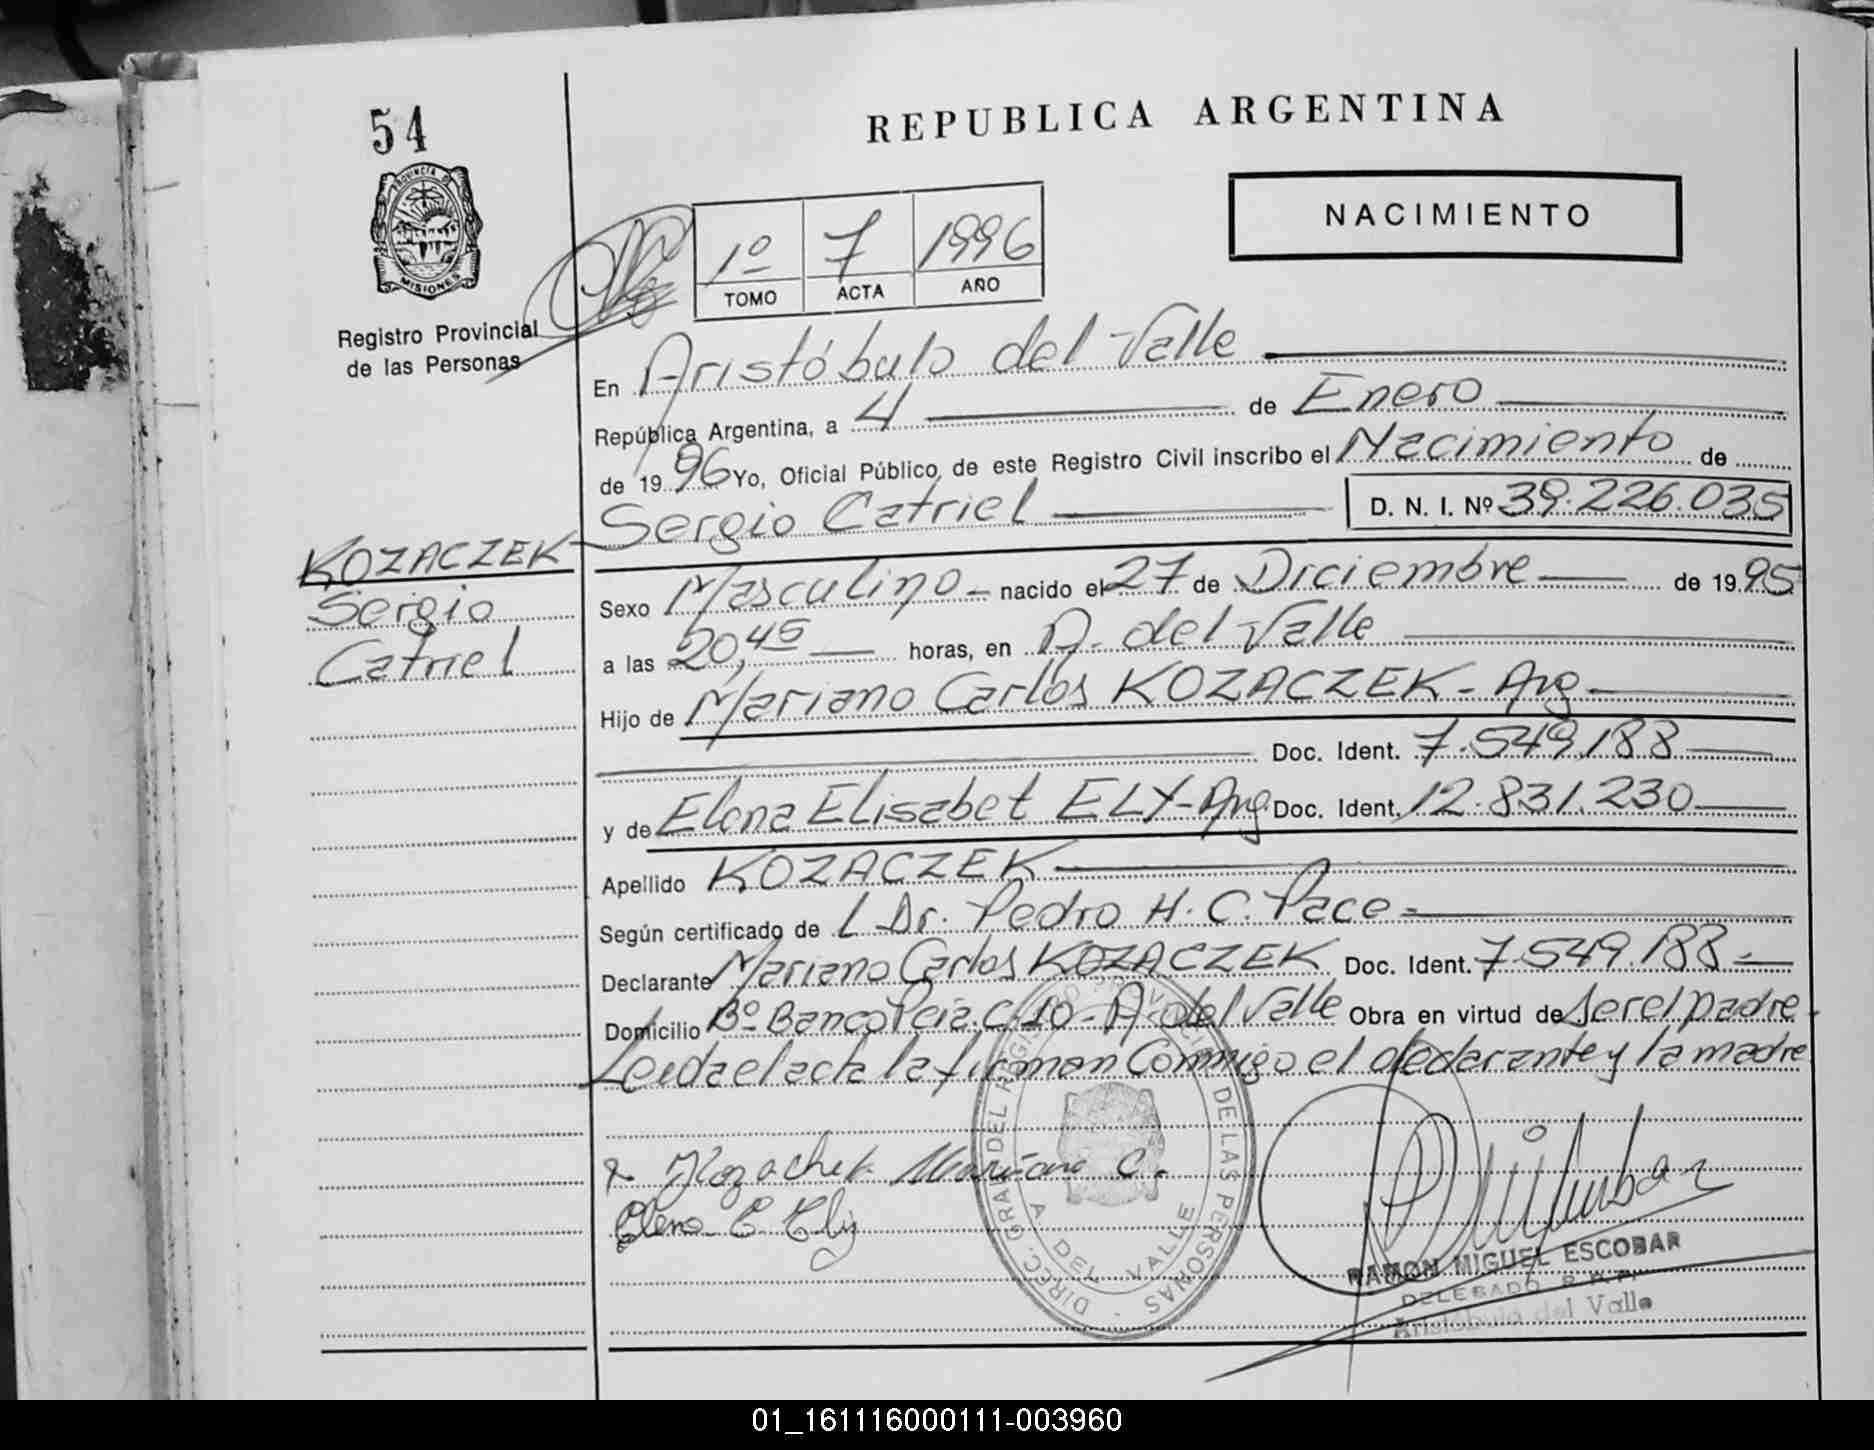 54
REPUBLICA ARGENTINA
PROVINCIA DE MISIONES
NACIMIENTO
1º 7 1996
TOMO ACTA AÑO
Registro Provincial
de las Personas
En Aristóbulo del Valle
República Argentina, a 4 de Enero
de 1996 Yo, Oficial Público, de este Registro Civil inscribo el Nacimiento de
Sergio Catriel D. N. I. Nº 39.226.035
KOZACZEK
Sergio
Catriel
Sexo Masculino nacido el 27 de Diciembre de 1995
a las 20,45 horas, en A. del Valle
Hijo de Mariano Carlos KOZACZEK - Arg.
Doc. Ident. 7.549.188
y de Elena Elisabet ELY - Arg. Doc. Ident. 12.831.230
Apellido KOZACZEK
Según certificado de L Dr. Pedro H. C. Pace
Declarante Mariano Carlos KOZACZEK Doc. Ident. 7.549.188
Domicilio Bº Banco Pcia. C-10 - A. del Valle Obra en virtud de ser el padre.
Leida el acta la firman conmigo el declarante y la madre
Kozachek Mariano C.
Elena E Ely
DIREC. GRAL DEL REGISTRO PROVINCIAL DE LAS PERSONAS - A DEL VALLE
RAMON MIGUEL ESCOBAR
DELEGADO R.P.P.
Aristóbulo del Valle
01_161116000111-003960